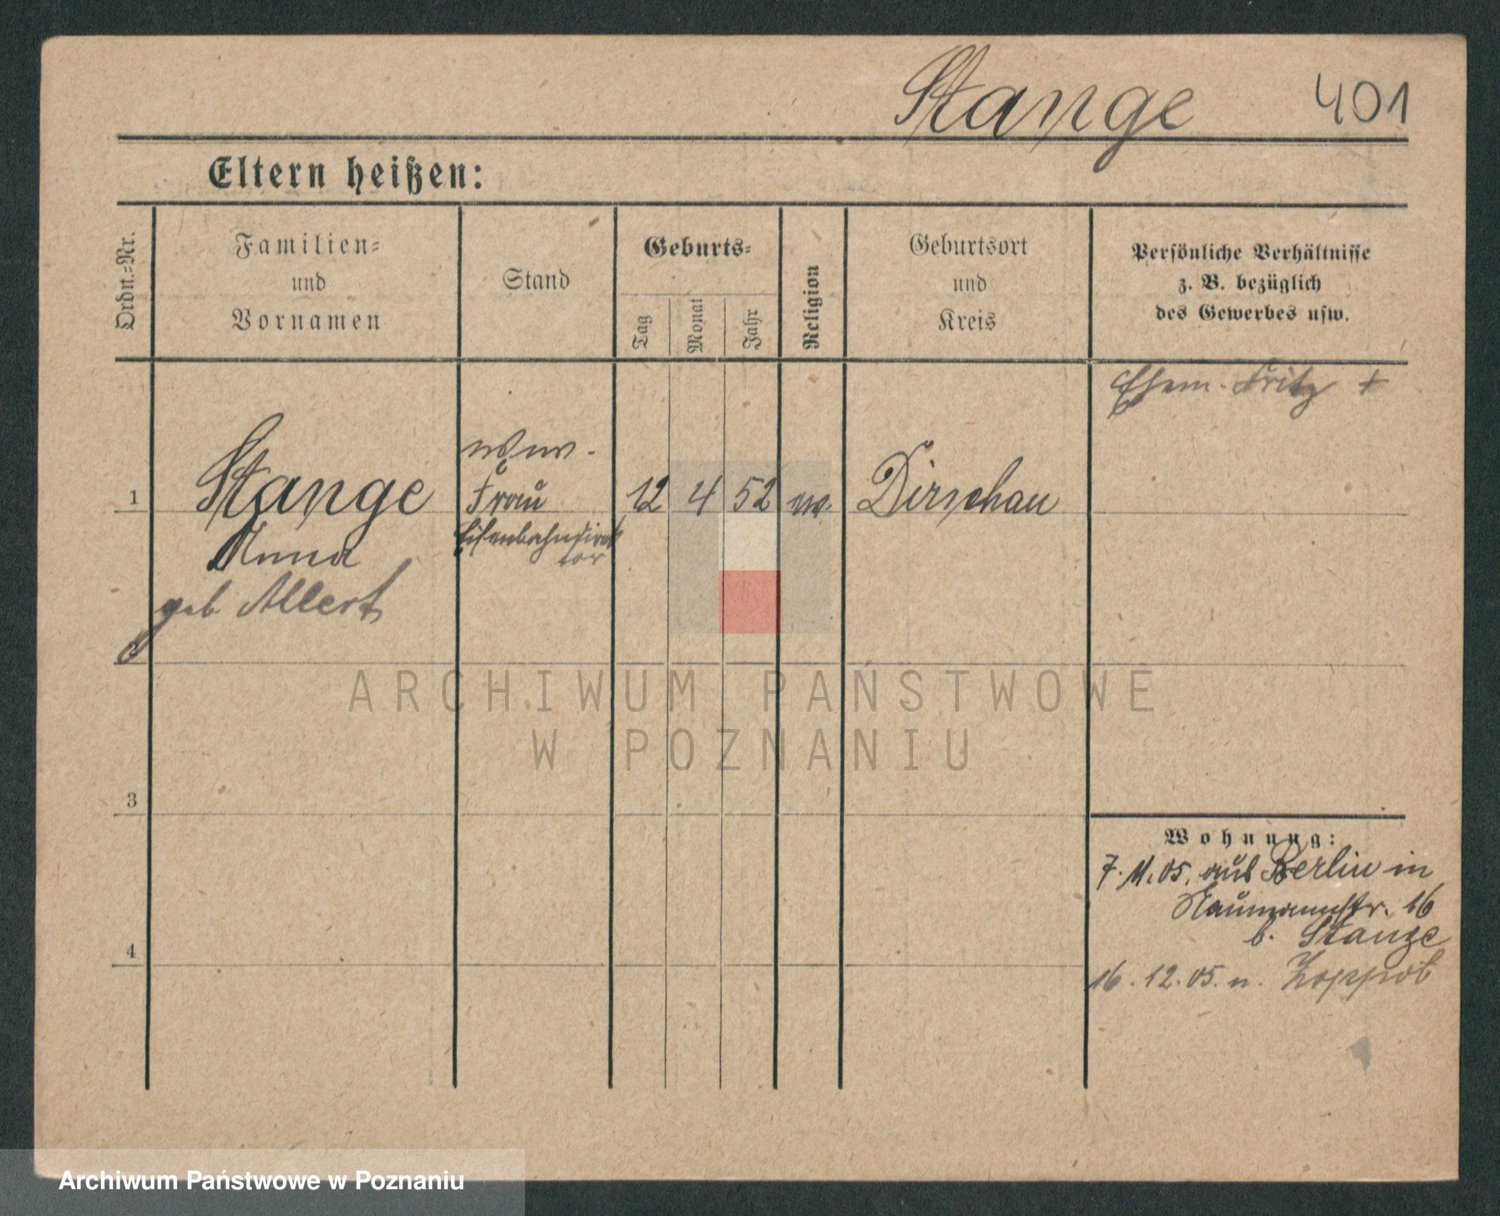 Stange 401
Eltern heißen:
Ordn.-Nr.
Familien-
und
Vornamen
Stand
Geburts-
Tag
Monat
Jahr
Religion
Geburtsort
und
Kreis
Persönliche Verhältnisse
z. B. bezüglich
des Gewerbes usw.
Ehem. Fritz +
1 Stange
Anna
geb. Allert
Ww.
Frau
Eisenbahndirek
tor
12 4 52
Dirschau
3
4
Wohnung:
7. 11. 05. aus Berlin in
Naumannstr. 16
b. Stange
16. 12. 05. n. Zoppot
ARCHIWUM PAŃSTWOWE
W POZNANIU
Archiwum Państwowe w Poznaniu